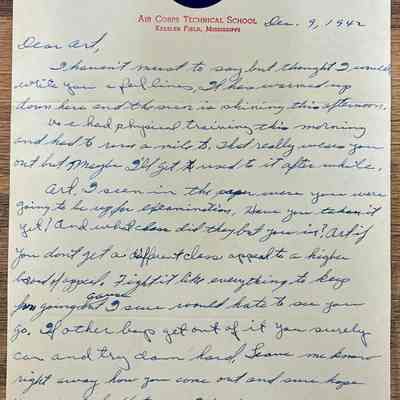 Air Corps Technical School
Keesler Field, Mississippi
Dec. 9, 1942
Dear Art,
I haven't much to say but thought I would
write you a few lines, It has warmed up
down here and the sun is shining this afternoon.
We had physical training this morning
and had to run a mile to. That really wears you
out but Maybe I'll get used to it after while.
Art, I seen in the paper were you were
going to be up for examination, Have you taken it
yet? And what class did they put you in? Art if
you don't get a different class appeal to a higher
board of appeal. Fight it like everything to keep
from going cause I sure would hate to see you
go. If other boys get out of it you surely
can and try darn hard, Leave me know
right away how you come out and sure hope